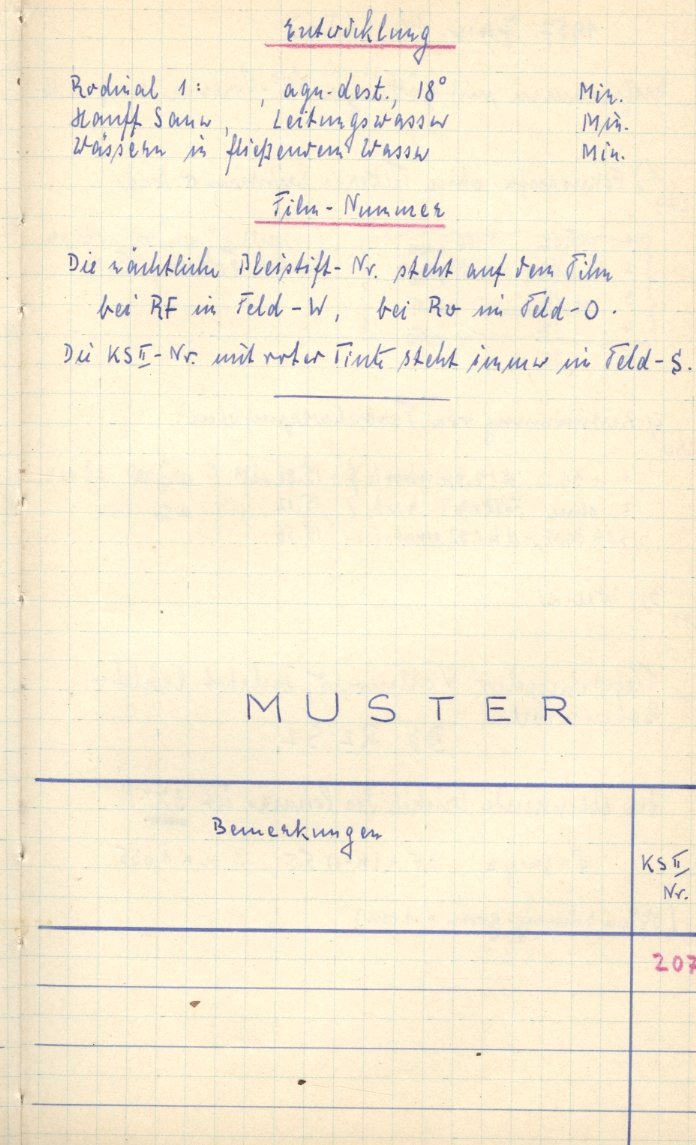 Entwicklung
Rodinal 1:      , aqu. dest., 18°      Min.
Hauff Sauer, Leitungswasser      Min.
Wässern in fließendem Wasser      Min.
Film-Nummer
Die nächtliche Bleistift-Nr. steht auf dem Film
bei RF in Feld-W, bei Ro in Feld-O.
Die KSII-Nr. mit roter Tinte steht immer in Feld-S.
MUSTER
Bemerkungen
KSII
Nr.
207